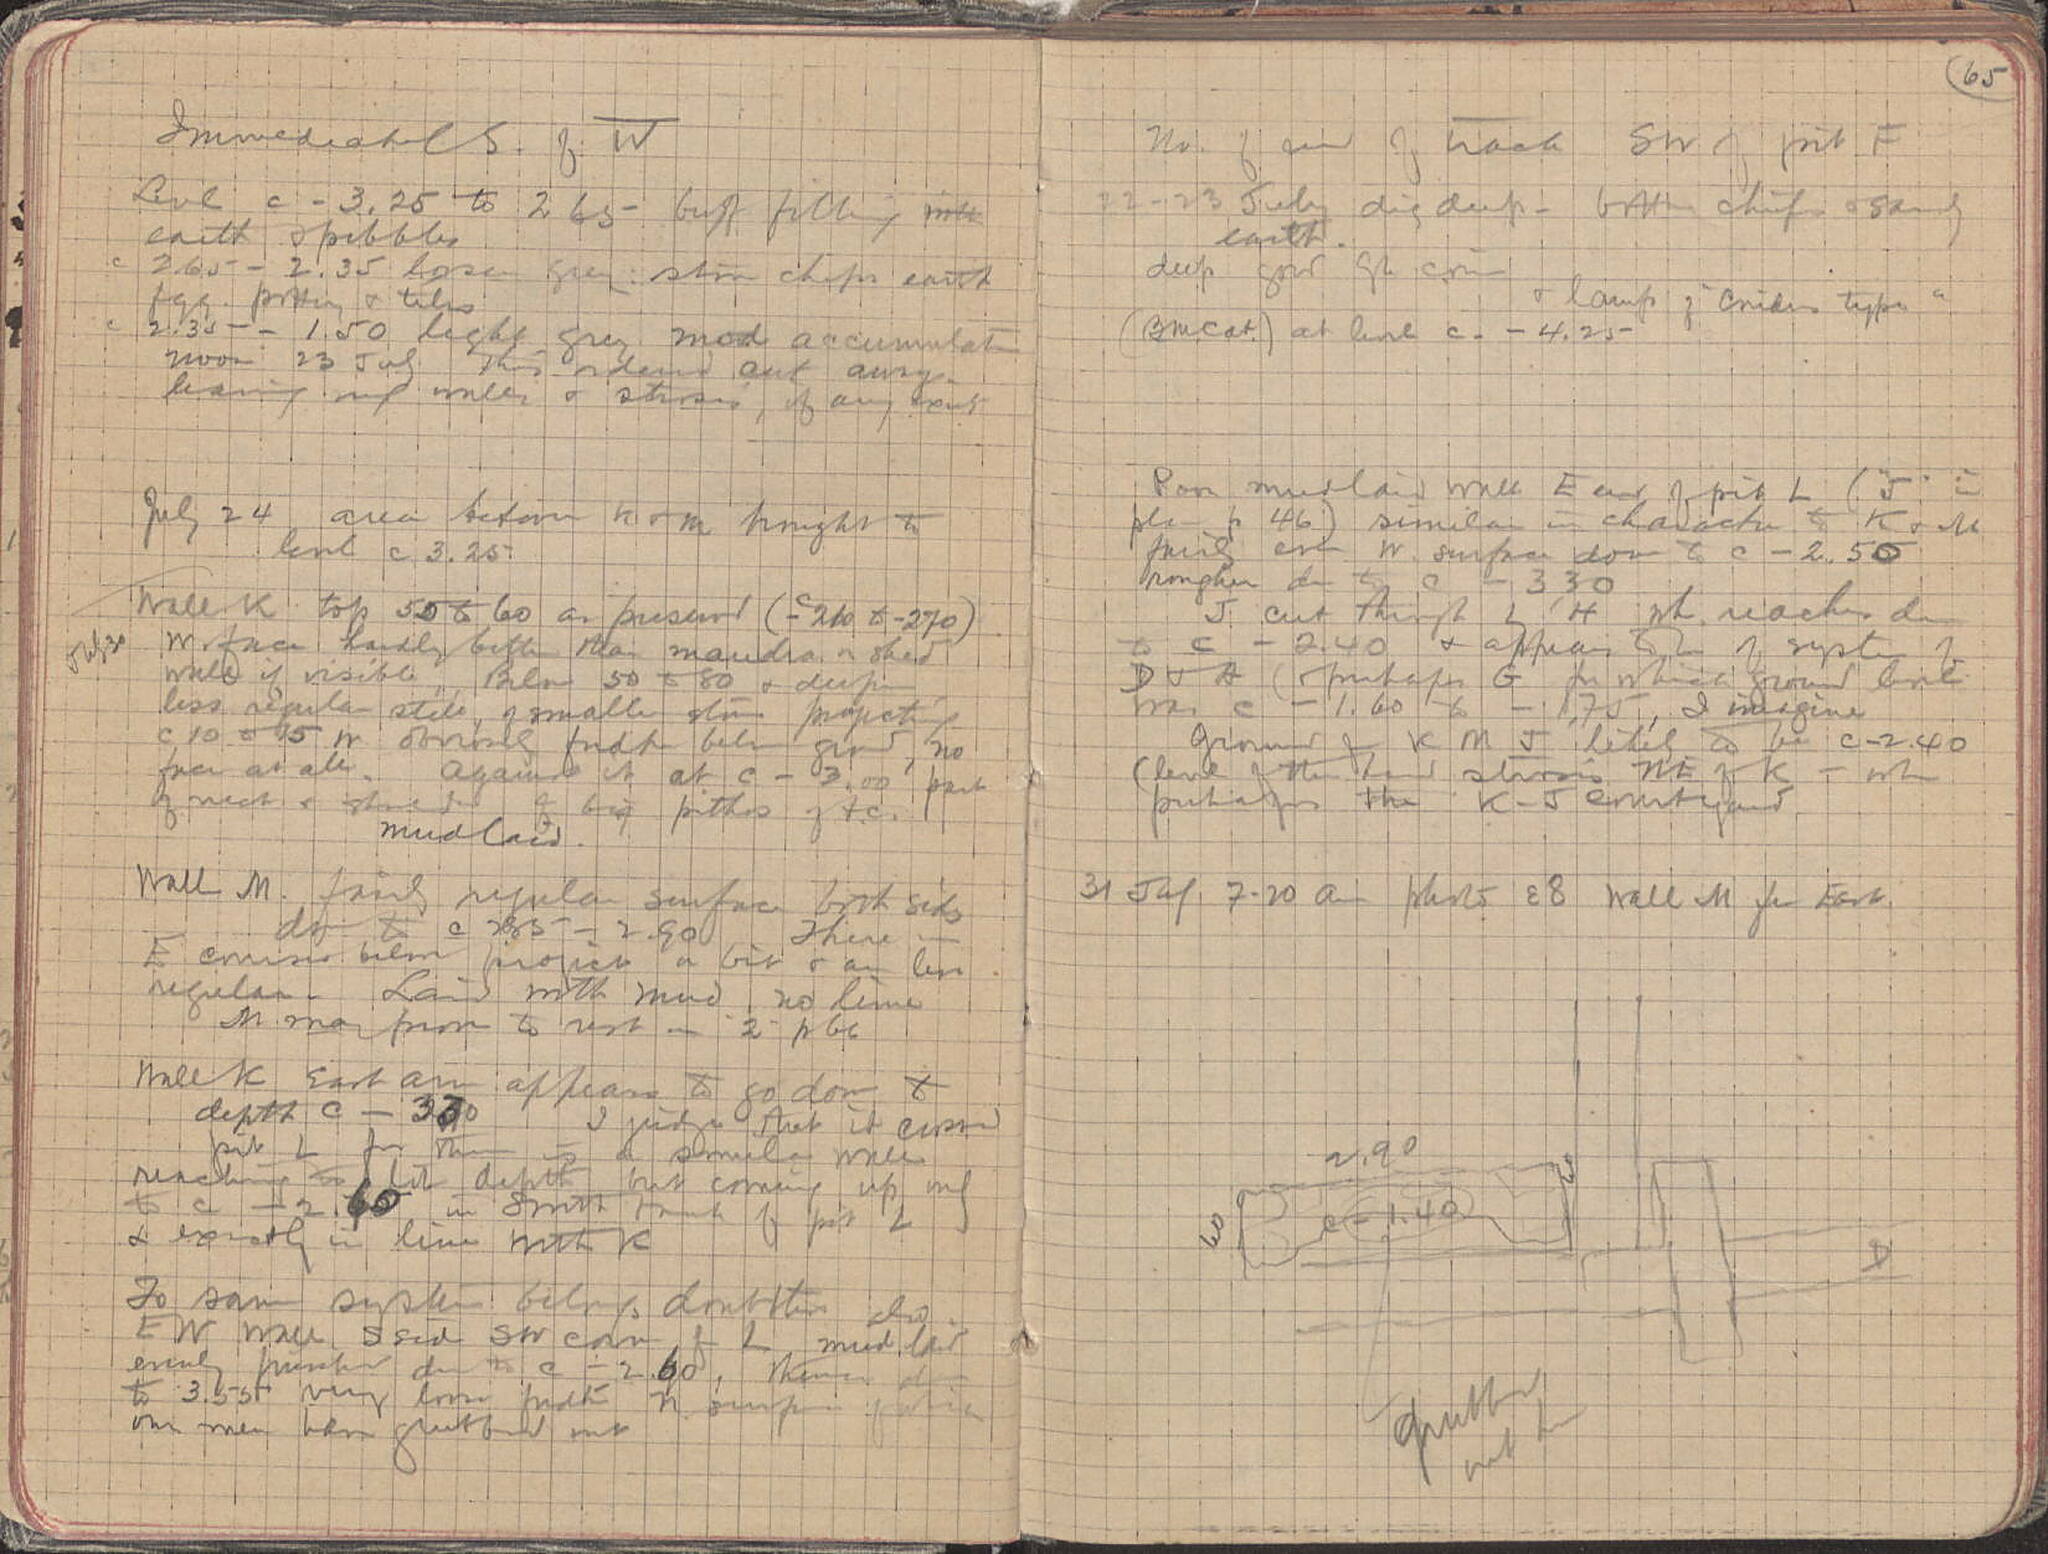 Immediately S. of W
Level c - 3.25 to 265 - buff filling with
earth & pebbles
c 265 - 2.35 loose grey: stone chips earth
fgg. pottery & tiles
c 2.35 - 1.50 light grey mod accumulation
noon 23 July this ordered cut away
leaving only walls & strosis, if any exist
July 24 area between K & M brought to
level c 3.25
Wall K top 50 to 60 as preserved (-c 210 to -270)
July 30
W. face hardly better than mandra or shed
wall if visible. Below 50 to 80 & deeper
less regular still, of smaller stones projecting
c 10 to 15 W obviously further below ground, no
face at all. Against it at c - 3.00 part
of neck & shoulder of big pithos of t.c.
mudlaid.
Wall M. fairly regular surface both sides
down to c 285 - 2.90 There
E courses below project a bit & are less
regular. Laid with mud no lime
M may prove to rest on 2 p 66
Wall K East arm appears to go down to
depth c - I judge that it crossed
pit L for there is a similar wall
reaching to depth but coming up only
to c - 2.60 in South trench of pit L
& exactly in line with K
To same system belongs doubtless also
EW wall S side SW corner of L mud laid
evenly finished down to c - 2.60, thence down
to 3.55 very loose N. surface
our men have grubbed out
65
No. of end of track SW of pit F
22-23 July dig deep - bottom chips & sandy
earth.
deep good Gk coin
& lamp of "Cnidus type"
(BMCat.) at level c. - 4.25
Poor mudlaid wall E end of pit L ("J" in
plan p 46) similar in character to K & M
fairly even W. surface down to c - 2.50
rougher down to c - 330
J cut through by H wh. reaches down
to c - 2.40 & appears to be of system of
D & A (& perhaps G for which ground level
was c - 1.60 to - 1.75, I imagine
Ground for K M J likely to be c - 2.40
(level of the hard strosis NE of K - wh
perhaps the K-J courtyard
31 July 7-20 am photo E8 Wall M from East.
2.90
60
60
c - 1.40
D
grubbed
out